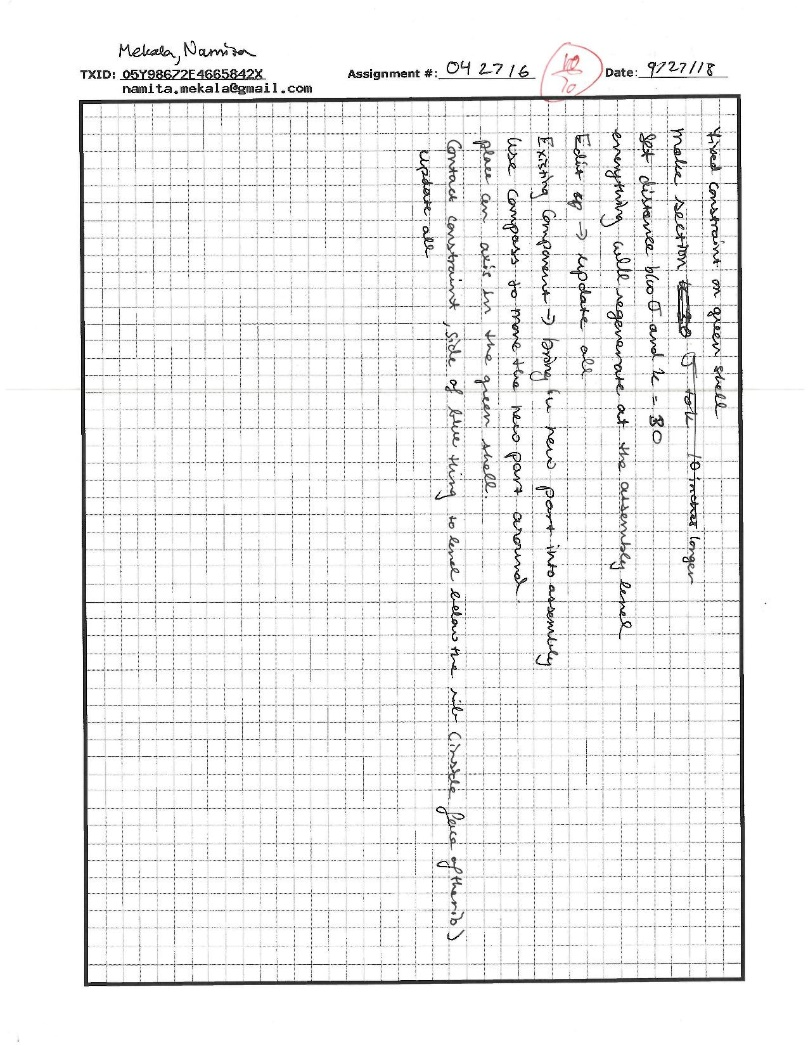 Mekala, Namita
TXID: 05Y98672E4665842X
Assignment #: 042716
10/10
Date: 9/27/18
namita.mekala@gmail.com
Fixed constraint on green shell
Make section J to k 10 inches longer
Set distance b/w J and k = 30
everything will regenerate at the assembly level
Edit → update all
Existing Component → bring in new part into assembly
Use compass to move the new part around.
place an axis in the green shell.
Contact constraint, side of blue thing to level below the rib (inside face of the rib)
update all